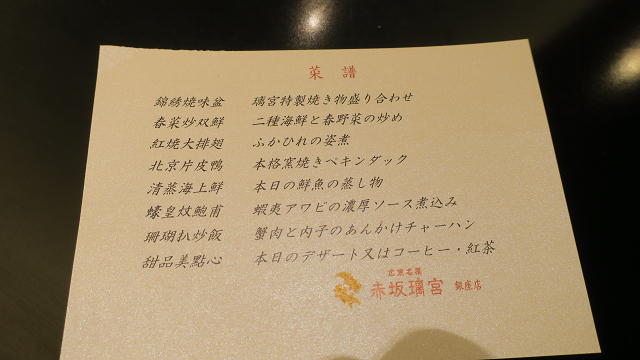 菜譜
錦綉燒味盆 璃宮特製焼き物盛り合わせ
春菜炒双鮮 二種海鮮と春野菜の炒め
紅燒大排翅 ふかひれの姿煮
北京片皮鴨 本格窯焼きペキンダック
清蒸海上鮮 本日の鮮魚の蒸し物
蠔皇炆鮑甫 蝦夷アワビの濃厚ソース煮込み
珊瑚扒炒飯 蟹肉と内子のあんかけチャーハン
甜品美點心 本日のデザート又はコーヒー・紅茶
広東名菜
赤坂璃宮 銀座店